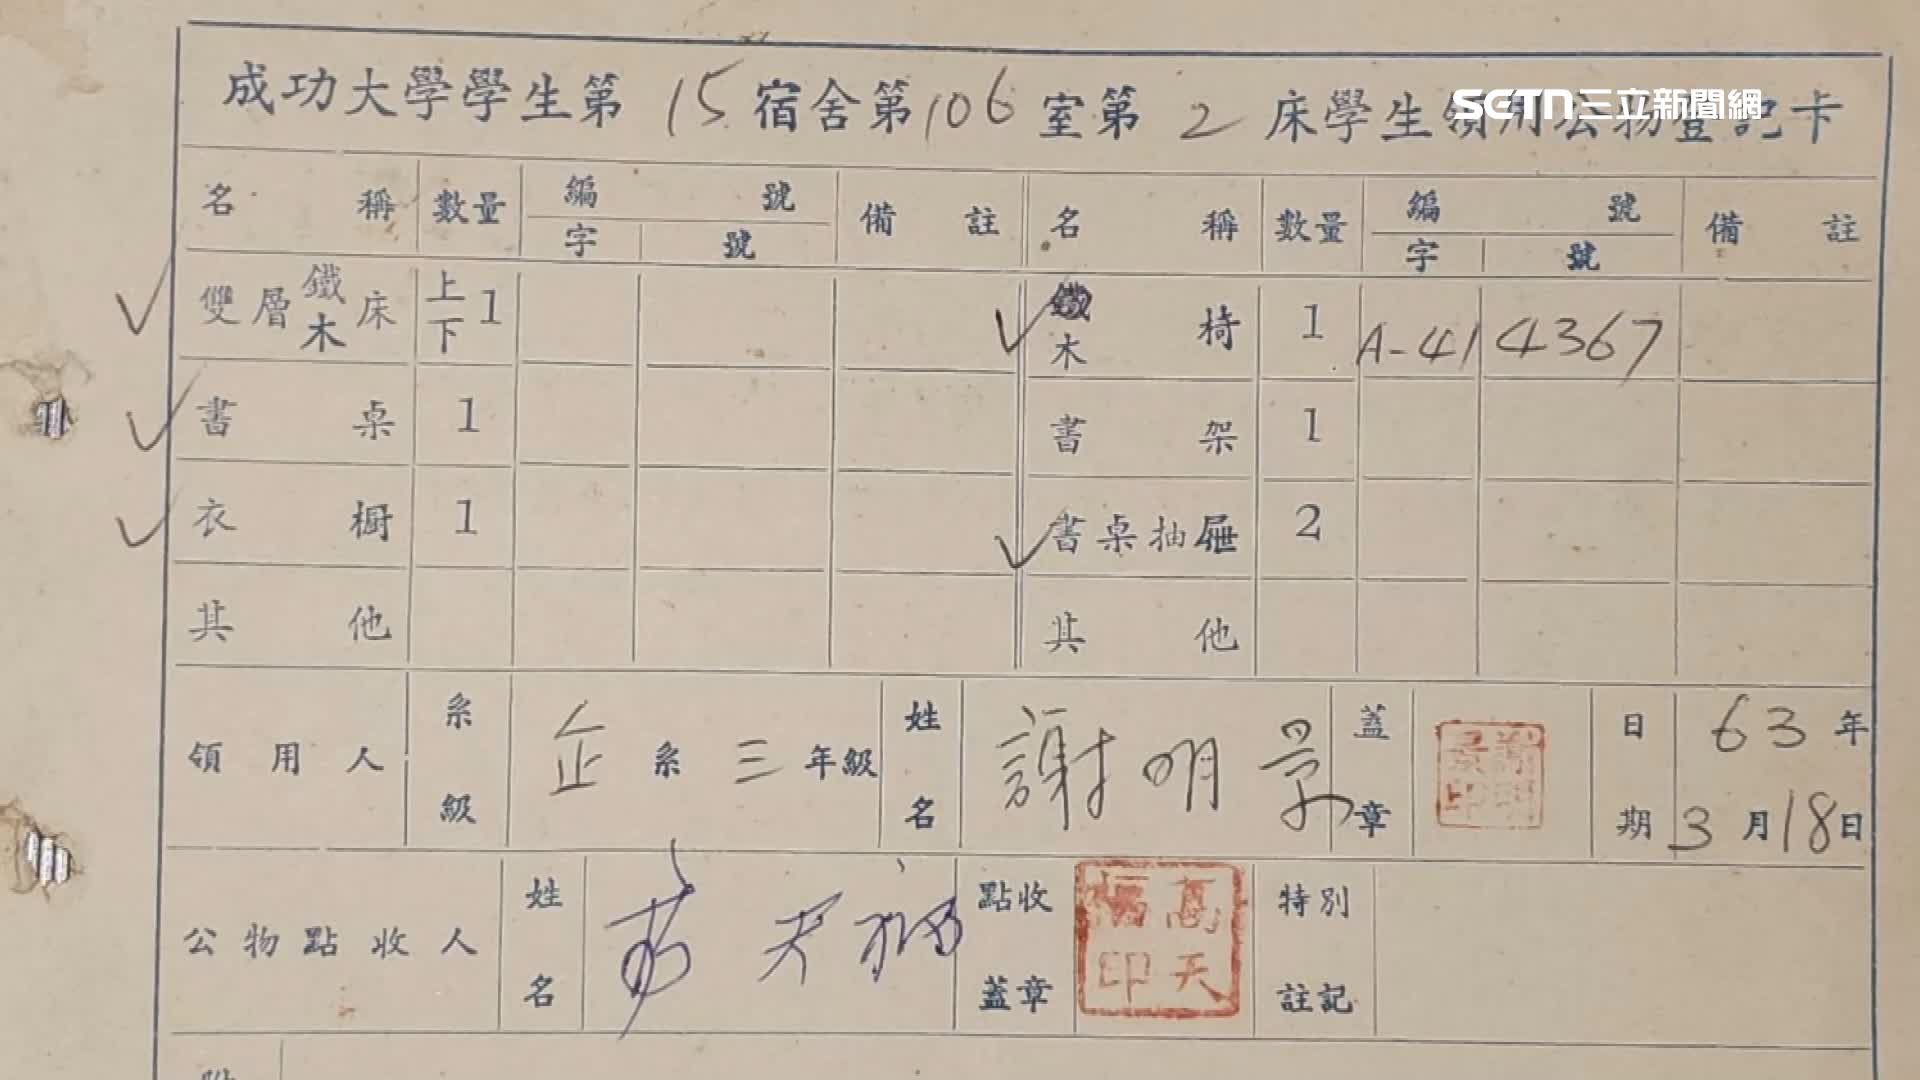 成功大學學生第 15 宿舍第 106 室第 2 床學生領用公物登記卡
SETN三立新聞網
名稱 數量 編號 備註 名稱 數量 編號 備註
字 號 字 號
雙層鐵木床 上下1 鐵木椅 1 A-41 4367
書桌 1 書架 1
衣櫥 1 書桌抽屜 2
其他 其他
領用人 系級 企系三年級 姓名 謝明景 蓋章 謝明景印 日期 63年3月18日
公物點收人 姓名 高天福 點收蓋章 高天福印 特別註記